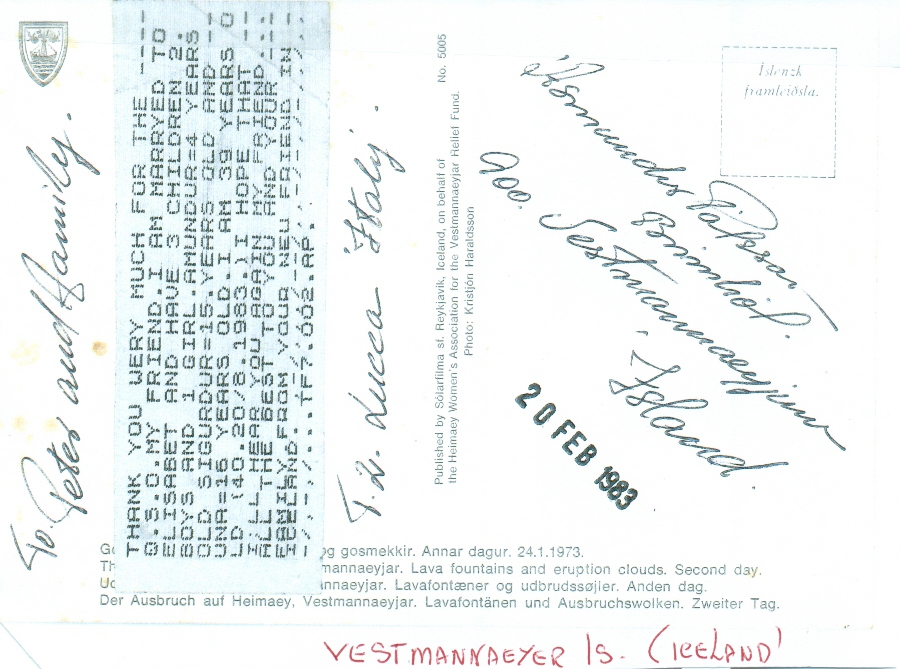 To Peter and Family.
THANK YOU WERY MUCH FOR THE ---
Q.S.O.MY FRIEND.I AM MARRYED TO
ELISABET AND HAVE 3 CHILDREN 2.
BOYS AND 1 GIRL.AMUNDUR=4 YEARS
OLD SIGURDUR=15.YEARS OLD AND -
UNA=16 YEARS OLD.I AM 39 YEARS O
LD (40.20/8.1983.)I HOPE THAT --
I'LL HEAR YOU AGAIN MY FRIEND.--
ALL THE BEST TO YOU AND YOUR --
FAMILY FROM YOUR NEW FRIEND IN
ICELAND.
TF7.002.AP.
Lucca Italy.
Published by Sólarfilma sf. Reykjavik, Iceland, on behalf of No. 5005
the Heimaey Women's Association for the Vestmannaeyjar Relief Fund.
Photo: Kristjón Haraldsson
Íslenzk
framleiðsla.
Ásmundur Pálsson
Brimhól.
900. Vestmannaeyjum
Ísland
20 FEB 1983
og gosmekkir. Annar dagur. 24.1.1973.
Th mannaeyjar. Lava fountains and eruption clouds. Second day.
Ud nnaeyjar. Lavafontæner og udbrudssøjler. Anden dag.
Der Ausbruch auf Heimaey, Vestmannaeyjar. Lavafontänen und Ausbruchswolken. Zweiter Tag.
VESTMANNAEYER IS. (ICELAND)